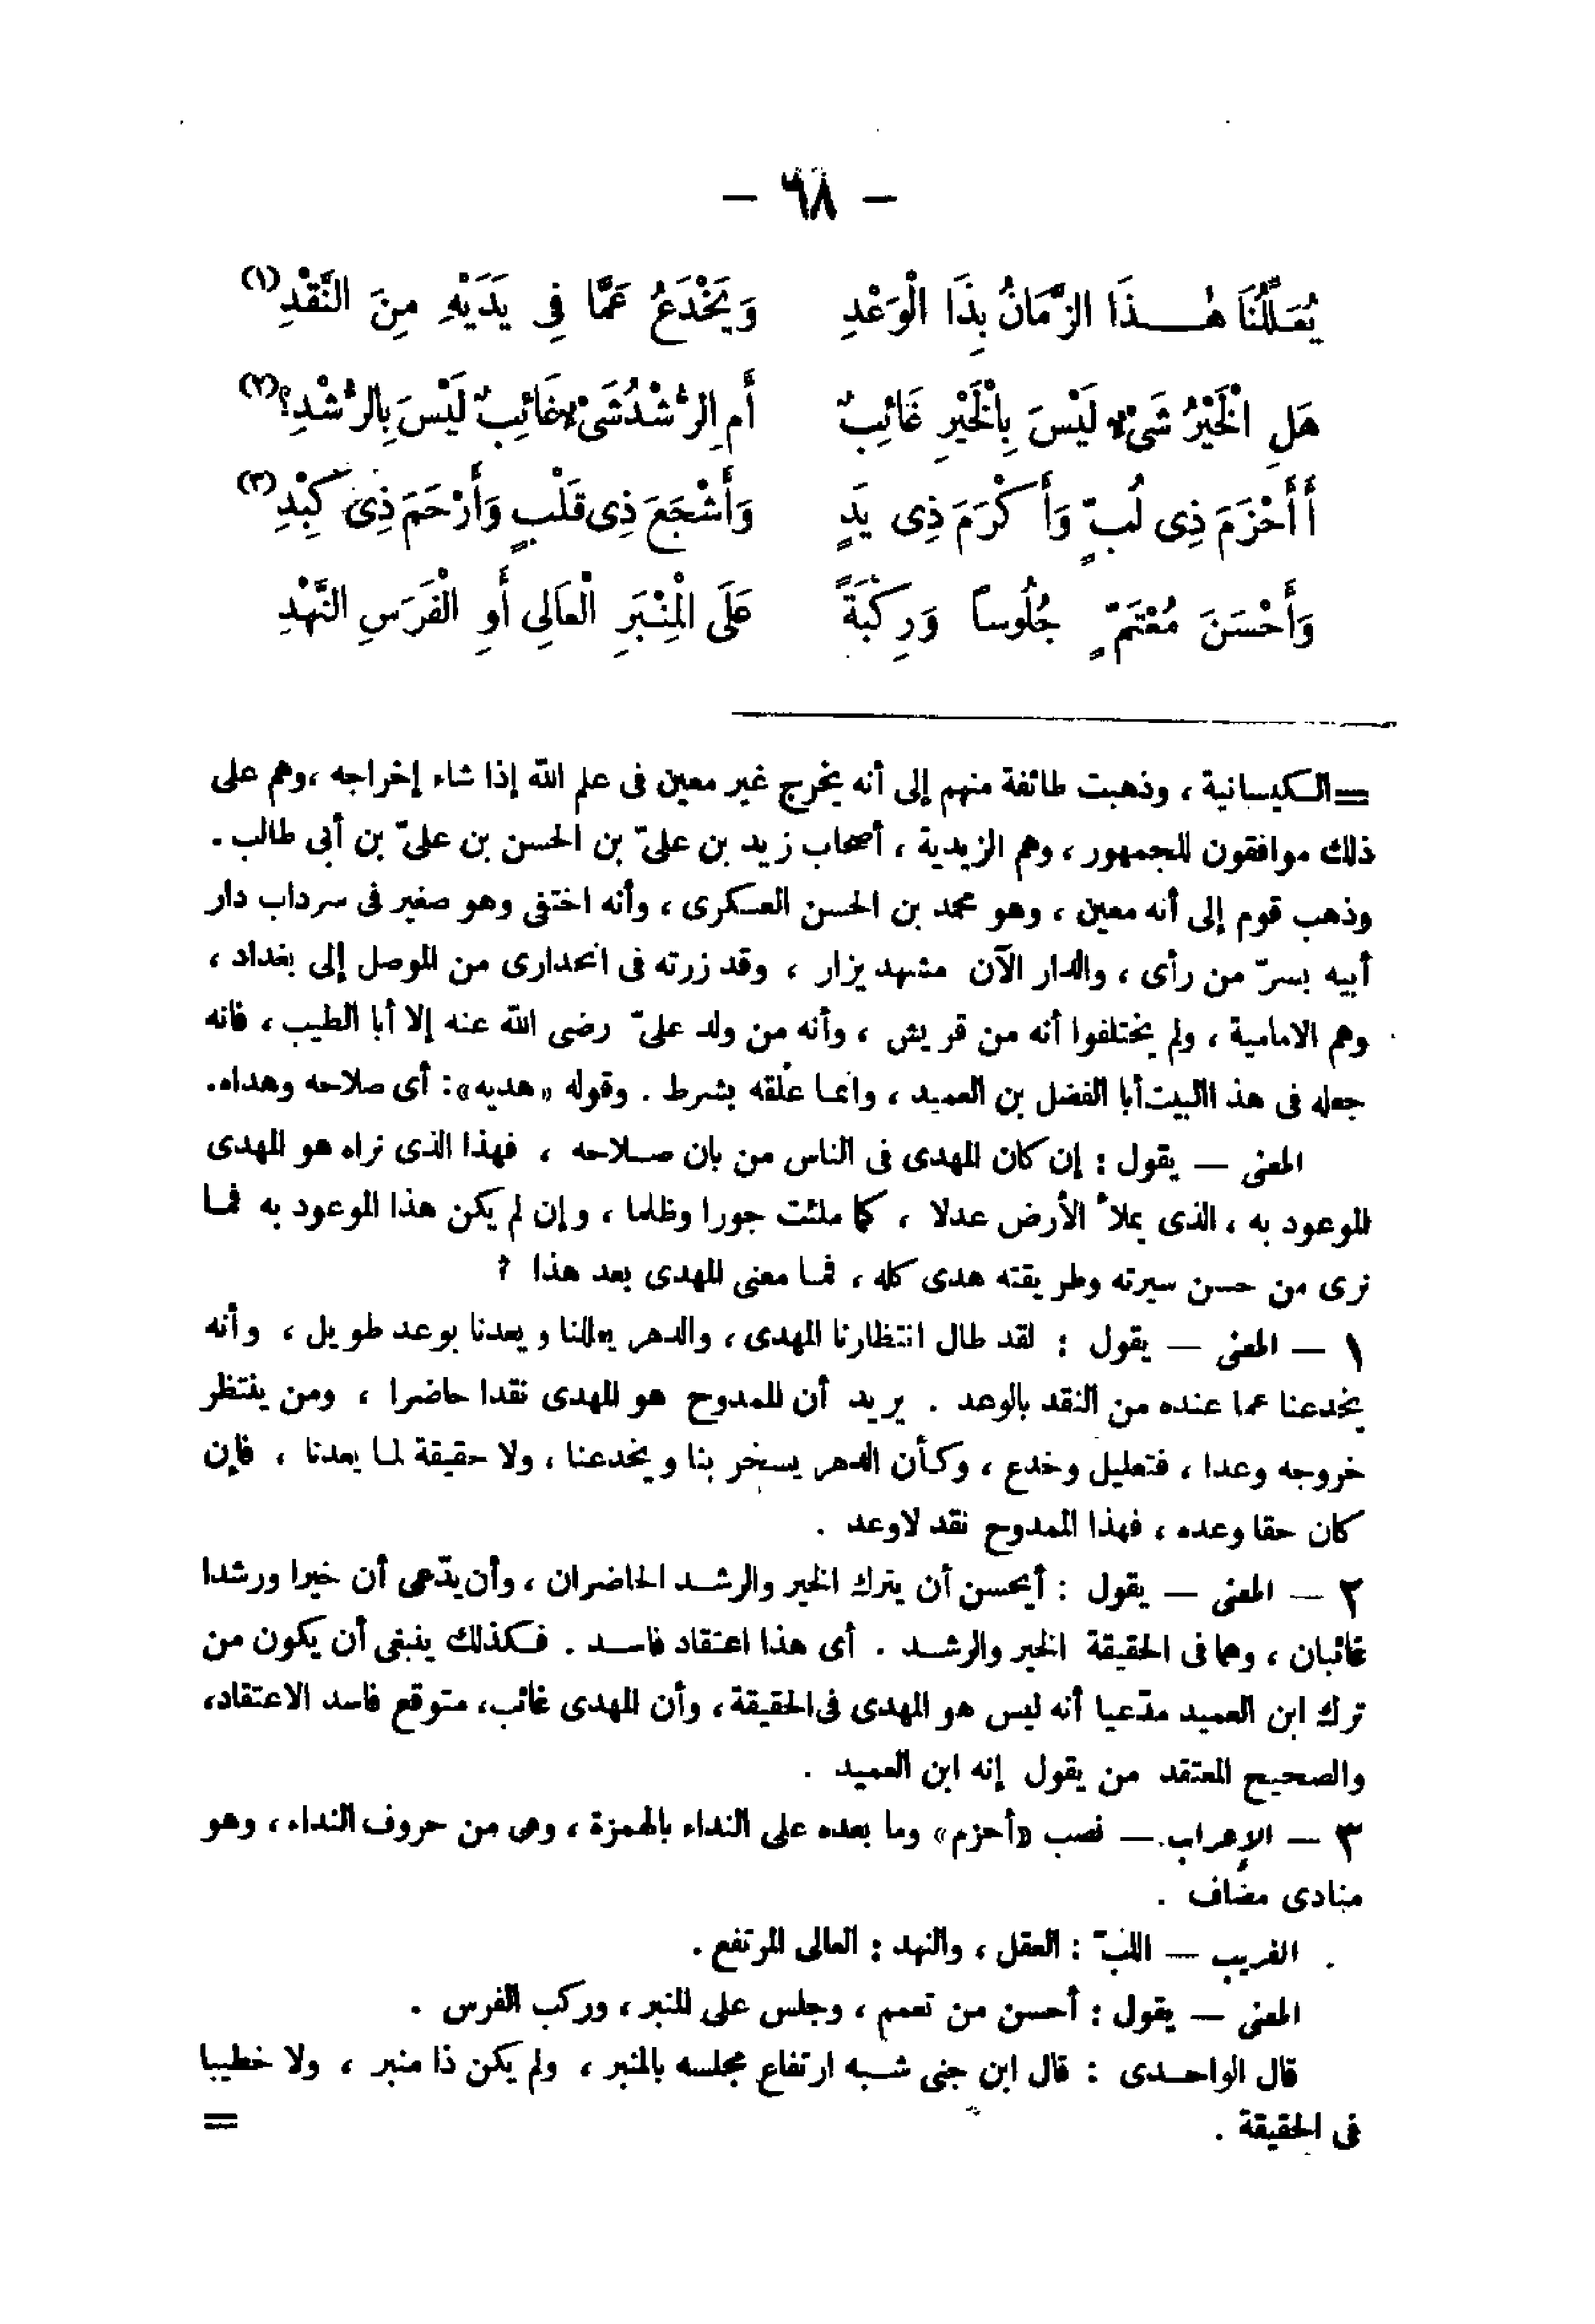 — ٦٨ —
يُعَلِّلُنَا هٰذَا الزَّمَانُ بِذَا الْوَعْدِ وَيَخْدَعُ عَمَّا فِي يَدَيْهِ مِنَ النَّقْدِ (١)
هَلِ الْخَيْرُ شَىْءٌ لَيْسَ بِالْخَيْرِ غَائِبٌ أَمِ الرُّشْدُ شَىْءٌ غَائِبٌ لَيْسَ بِالرُّشْدِ؟ (٢)
أَأَحْزَمَ ذِى لُبٍّ وَأَكْرَمَ ذِى يَدٍ وَأَشْجَعَ ذِى قَلْبٍ وَأَرْحَمَ ذِى كِبْدِ (٣)
وَأَحْسَنَ مُعْتَمٍّ جُلُوساً وَرِكْبَةً عَلَى الْمِنْبَرِ الْعَالِى أَوِ الْفَرَسِ النَّهْدِ
=الكيسانية ، وذهبت طائفة منهم إلى أنه يخرج غير معين فى علم الله إذا شاء إخراجه ،وهم على
ذلك موافقون للجمهور ، وهم الزيدية ، أصحاب زيد بن علىّ بن الحسن بن علىّ بن أبى طالب .
وذهب قوم إلى أنه معين ، وهو محمد بن الحسن العسكرى ، وأنه اختفى وهو صغير فى سرداب دار
أبيه بسرّ من رأى ، والدار الآن مشهد يزار ، وقد زرته فى انحدارى من الموصل إلى بغداد ،
وهم الامامية ، ولم يختلفوا أنه من قريش ، وأنه من ولد علىّ رضى الله عنه إلا أبا الطيب ، فانه
جعله فى هذ االبيت أبا الفضل بن العميد ، وانما علقه بشرط . وقوله «هديه»: أى صلاحه وهداه.
المعنى — يقول : إن كان المهدى فى الناس من بان صلاحه ، فهذا الذى نراه هو المهدى
الموعود به ، الذى يملأ الأرض عدلا ، كما ملئت جورا وظلما ، وإن لم يكن هذا الموعود به فما
نرى من حسن سيرته وطريقته هدى كله ، فما معنى المهدى بعد هذا ؟
١ — المعنى — يقول : لقد طال انتظارنا المهدى ، والدهر يعللنا ويعدنا بوعد طويل ، وأنه
يخدعنا عما عنده من النقد بالوعد . يريد أن الممدوح هو المهدى نقدا حاضرا ، ومن ينتظر
خروجه وعدا ، فتعليل وخدع ، وكأن الدهر يسخر بنا ويخدعنا ، ولا حقيقة لما يعدنا ، فإن
كان حقا وعده ، فهذا الممدوح نقد لاوعد .
٢ — المعنى — يقول : أيحسن أن يترك الخير والرشد الحاضران ، وأن يدّعى أن خيرا ورشدا
غائبان ، وهما فى الحقيقة الخير والرشد . أى هذا اعتقاد فاسد . فكذلك ينبغى أن يكون من
ترك ابن العميد مدّعيا أنه ليس هو المهدى فى الحقيقة ، وأن المهدى غائب، متوقع فاسد الاعتقاد،
والصحيح المعتقد من يقول إنه ابن العميد .
٣ — الإعراب — نصب «أحزم» وما بعده على النداء بالهمزة ، وهى من حروف النداء ، وهو
منادى مضاف .
الغريب — اللبّ : العقل ، والنهد : العالى المرتفع .
المعنى — يقول : أحسن من تعمم ، وجلس على المنبر ، وركب الفرس .
قال الواحدى : قال ابن جنى شبه ارتفاع مجلسه بالمنبر ، ولم يكن ذا منبر ، ولا خطيبا
فى الحقيقة . =